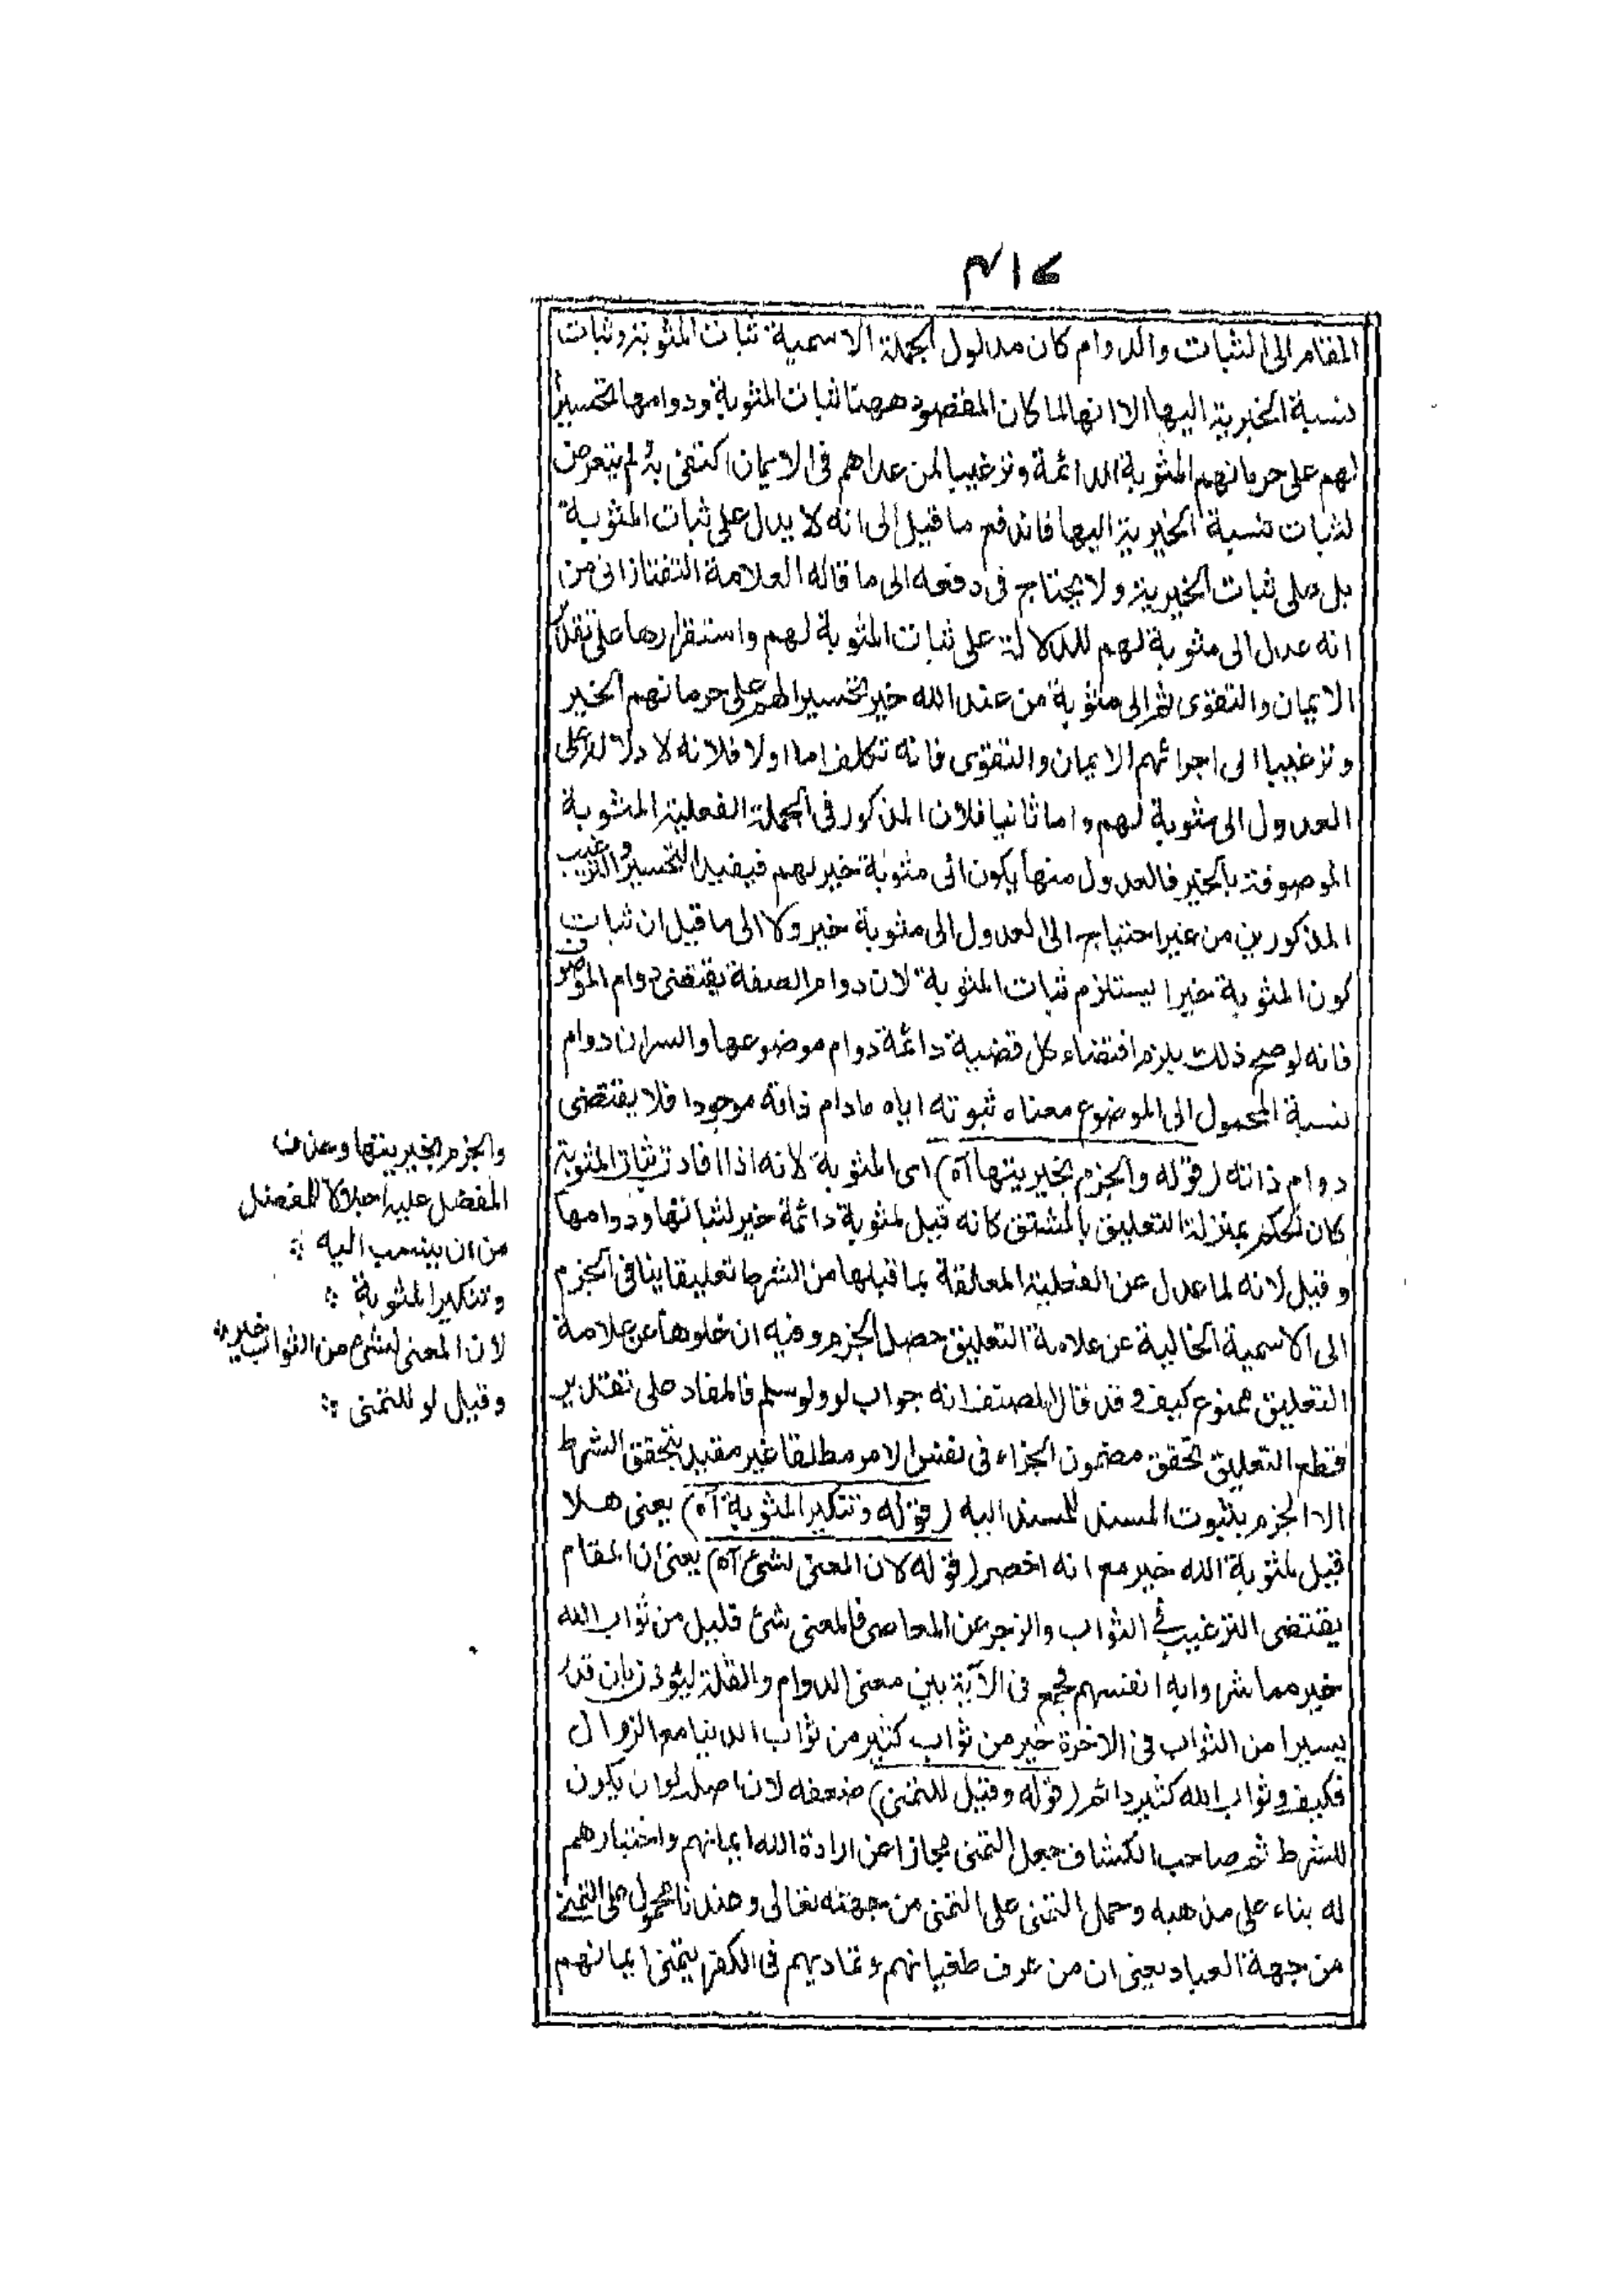 ٤١٤
المقام الى الثبات والدوام كان مدلول الجملة الاسمية ثبات المثوبة وثبات
نسبة الخيرية اليها الا انها لما كان المقصود ههنا ثبات المثوبة ودوامها تحسيرا
لهم على حرمانهم المثوبة الدائمة وترغيبا لمن عداهم فى الايمان اكتفى به لم يتعرض
لثبات نسبة الخيرية اليها فاندفع ما قيل الى انه لا يدل على ثبات المثوبة
بل على ثبات الخيرية ولا يحتاج فى دفعه الى ما قاله العلامة التفتازانى من
انه عدل الى مثوبة لهم للدلالة على ثبات المثوبة لهم واستقرارها على تقدير
الايمان والتقوى ثم الى مثوبة من عند الله خير تحسيرا لهم على حرمانهم الخير
وترغيبا الى اجرائهم الايمان والتقوى فانه تكلف اما اولا فلانه لا دلالة على
العدول الى مثوبة لهم واما ثانيا فلان المذكور فى الجملة الفعلية المثوبة
الموصوفة بالخير فالعدول منها يكون الى مثوبة خير لهم فيفيد التحسير والترغيب
المذكورين من غير احتياج الى العدول الى مثوبة خير ولا الى ما قيل ان ثبات
كون المثوبة خيرا يستلزم ثبات المثوبة لان دوام الصفة يقتضى دوام الموصوف
فانه لو صح ذلك يلزم اقتضاء كل قضية دائمة دوام موضوعها والسر ان دوام
نسبة المحمول الى الموضوع معناه ثبوته اياه مادام ذاته موجودا فلا يقتضى
دوام ذاته (قوله والجزم بخيريتها آه) اى المثوبة لانه اذا افاد ثبات المثوبة
كان الحكم بمنزلة التعليق بالمشتق كانه قيل لمثوبة دائمة خير لثباتها ودوامها
وقيل لانه لما عدل عن الفعلية المعلقة بما قبلها من الشرط تعليقا ينافى الجزم
الى الاسمية الخالية عن علامة التعليق حصل الجزم وفيه ان خلوها عن علامة
التعليق ممنوع كيف وقد قال المصنف انه جواب لو ولو سلم فالمفاد على تقدير
قطع التعليق تحقق مضمون الجزاء فى نفس الامر مطلقا غير مقيد بتحقق الشرط
الا الجزم بثبوت المسند للمسند اليه (قوله وتنكير المثوبة آه) يعنى هلا
قيل لمثوبة الله خير مع انه اخصر (قوله لان المعنى لشئ آه) يعنى ان المقام
يقتضى الترغيب فى الثواب والزجر عن المعاصى فالمعنى شئ قليل من ثواب الله
خير مما شروا به انفسهم فجمع فى الآية بين معنى الدوام والقلة ليؤذن بان قدرا
يسيرا من الثواب فى الاخرة خير من ثواب كثير من ثواب الدنيا مع الزوال
فكيف وثواب الله كثير دائم (قوله وقيل للتمنى) ضعفه لان اصل لو ان يكون
للشرط ثم صاحب الكشاف جعل التمنى مجازا عن ارادة الله ايمانهم واختيارهم
له بناء على مذهبه وحمل التمنى على التمنى من جهته تعالى وعندنا محمول على التمنى
من جهة العباد يعنى ان من عرف طغيانهم وتماديهم فى الكفر يتمنى ايمانهم
والجزم بخيريتها وحذف
المفضل عليه اجلالا للمفضل
من ان ينسب اليه
وتنكير المثوبة
لان المعنى لشئ من الثواب خير
وقيل لو للتمنى